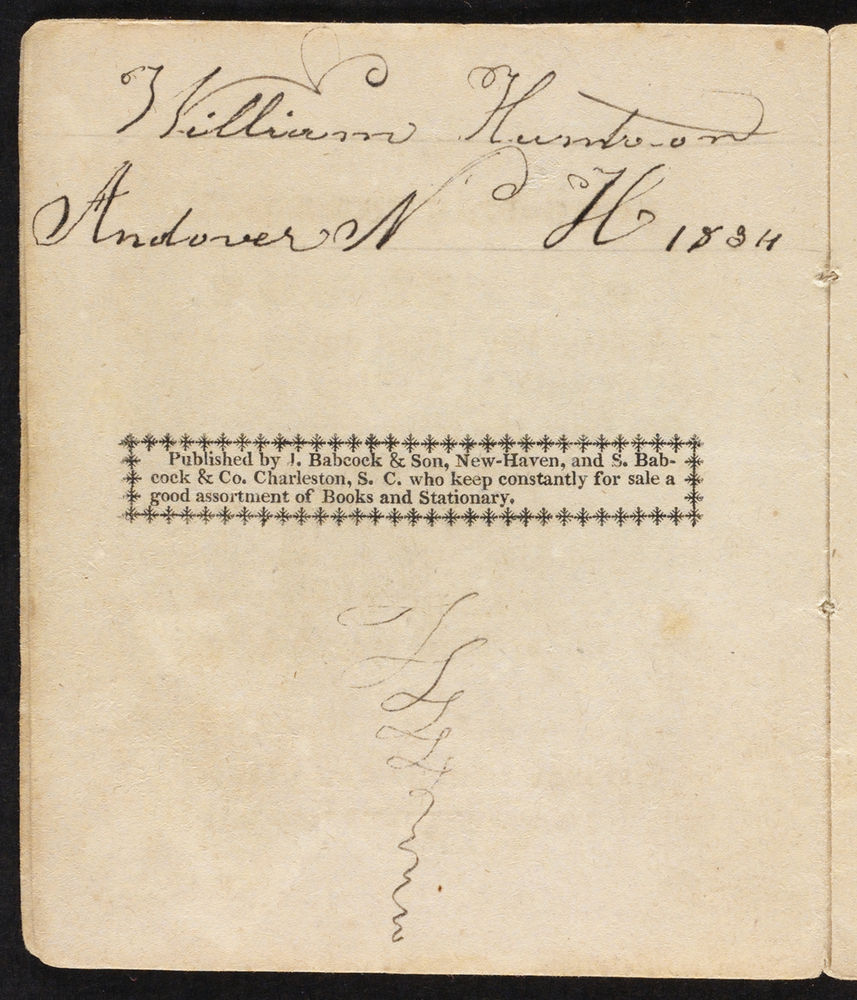 William Huntoon
Andover N H 1834
Published by J. Babcock & Son, New-Haven, and S. Bab-
cock & Co. Charleston, S. C. who keep constantly for sale a
good assortment of Books and Stationary.